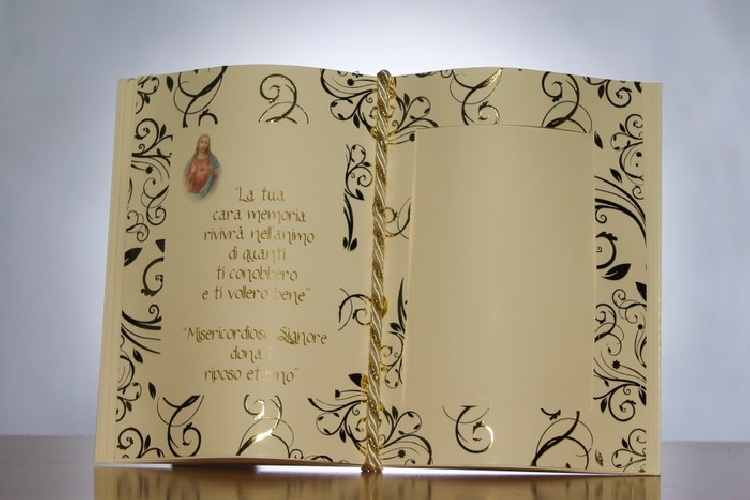 "La tua
cara memoria
rivivrà nell'animo
di quanti
ti conobbero
e ti vollero bene"
"Misericordioso Signore
dona
riposo eterno"